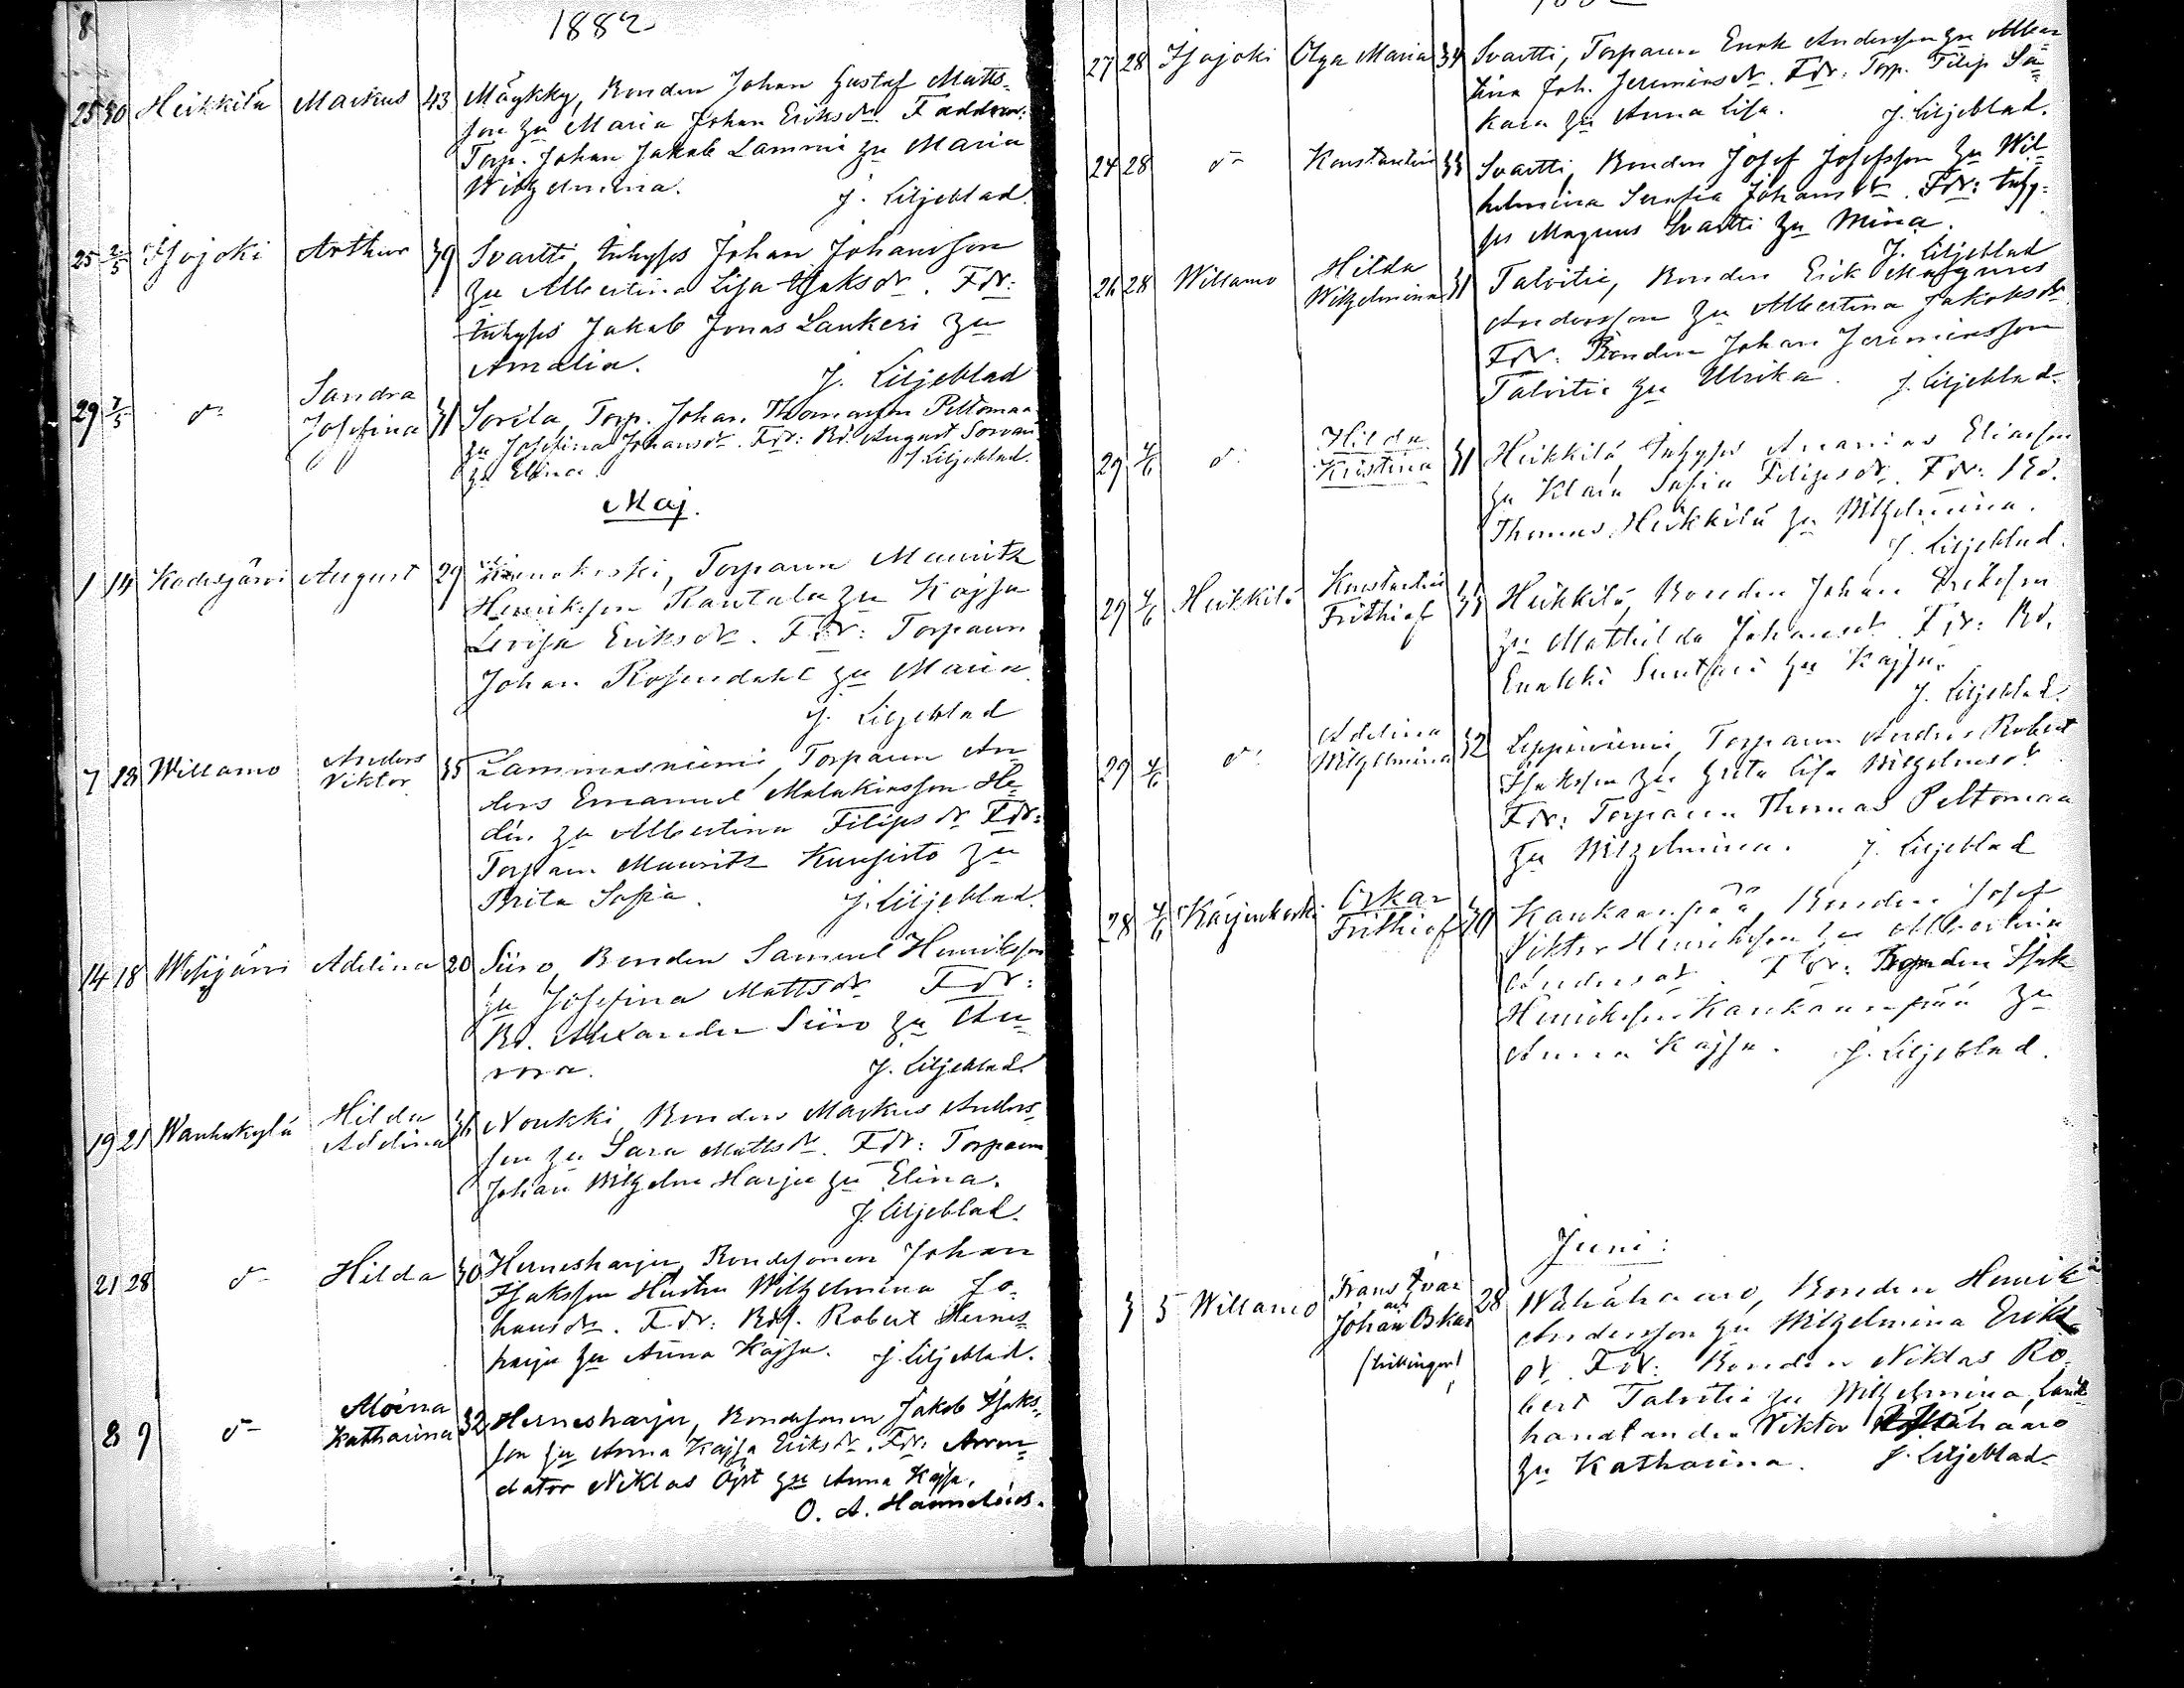 8
1882
25 30 Heikkilä Markus 43 Mäykky, Bonden Johan Gustaf Matts-
son zu Maria Johan Eriksdr. Faddrar:
Torp. Johan Jakob Lammi zu Maria
Wilhelmina. J. Liljeblad.
25 2/5 Isojoki Arthur 39 Svartti, Inhyses Johan Johansson
zu Albertina Lisa Isaksdr. Fdr:
Inhyses Jakob Jonas Lankeri zu
Amalia. J. Liljeblad
29 7/5 d:o Sandra
Josefina 31 Sorila, Torp. Johan Thomasson Peltomaa
zu Josefina Johansdr. Fdr: Bd. August Sorvari
zu Elina. J. Liljeblad.
Maj.
1 14 Kodesjärvi August 29 Torparen Maurits
Henriksson Rantala zu Kajsa
Lovisa Eriksdr. Fdr: Torparen
Johan Rosendahl zu Maria.
J. Liljeblad
7 18 Willamo Anders
Viktor 35 Lammasniemi, Torparen An-
ders Emanuel Malakiasson He-
din zu Albertina Filipsdr Fdr:
Torparen Maurits Kunsisto zu
Brita Sofia. J. Liljeblad.
14 18 Wesijärvi Adelina 20 Siiro, Bonden Samuel Henriksson
zu Josefina Mattsdr Fdr:
Bd. Alexander Siiro zu An-
na. J. Liljeblad.
19 21 Wanhakylä Hilda
Adelina 36 Noukki, Bonden Markus Anders-
son zu Sara Mattsdr. Fdr: Torparen
Johan Wilhelm Harju zu Elina.
J. Liljeblad.
21 28 d:o Hilda 30 Hernesharju, Bondesonen Johan
Isaksson Hustru Wilhelmina Jo-
hansdr. Fdr: Bds. Robert Hernes-
harju zu Anna Kajsa. J. Liljeblad.
8 9 d:o Moina
Katharina 32 Hernesharju, Bondesonen Jakob Isaks-
son zu Anna Kajsa Eriksdr. Fdr: Arren-
dator Niklas Öjst zu Anna Kajsa.
O. A.
27 28 Isojoki Olga Maria 34 Svartti, Torparen Enok Andersson zu Alber-
tina Joh. Jeremiasdr. Fdr: Torp. Filip Sa-
kara zu Anna Lisa. J. Liljeblad.
24 28 d:o Konstantin 33 Svartti, Bonden Josef Josefsson zu Wil-
helmina Serafia Johansdr. Fdr: Inhy-
ses Magnus Svartti zu Mina.
J. Liljeblad
26 28 Willamo Hilda
Wilhelmina 31 Talvitie, Bonden Erik Magnus
Andersson zu Albertina Jakobsdr
Fdr: Bonden Johan Jeremiasson
Talvitie zu Ulrika. J. Liljeblad.
29 4/6 d:o Hilda
Kristina 31 Heikkilä, Inhyses Ananias Eliasson
zu Klara Sofia Filipsdr. Fdr: Bd.
Thomas Heikkilä zu Wilhelmina.
J. Liljeblad.
29 4/6 Heikkilä Konstantin
Frithiof 33 Heikkilä, Bonden Johan Eriksson
zu Mathilda Johansdr. Fdr: Bd.
Enokki zu Kajsa.
J. Liljeblad.
29 4/6 d:o Adelina
Wilhelmina 32 Leppiniemi, Torparen Anders Robert
Isaksson zu Greta Lisa Wilhelmsdr
Fdr: Torparen Thomas Peltomaa
zu Wilhelmina. J. Liljeblad
28 4/6 Kärjenkoski Oskar
Frithiof Kankaanpää, Bonden Josef
Viktor Henriksson zu Albertina
Andersdr. Fdr: Bonden Isak
Henriksson Kankaanpää zu
Anna Kajsa. J. Liljeblad.
Juni:
3 5 Willamo Frans Ivar
och
Johan Oskar
(tvillingar) 28 Wähähaaro, Bonden Henrik
Andersson zu Wilhelmina Eriks-
dr. Fdr: Bonden Niklas Ro-
bert Talvitie zu Wilhelmina, Land-
handlanden Viktor Wähähaaro
zu Katharina. J. Liljeblad.